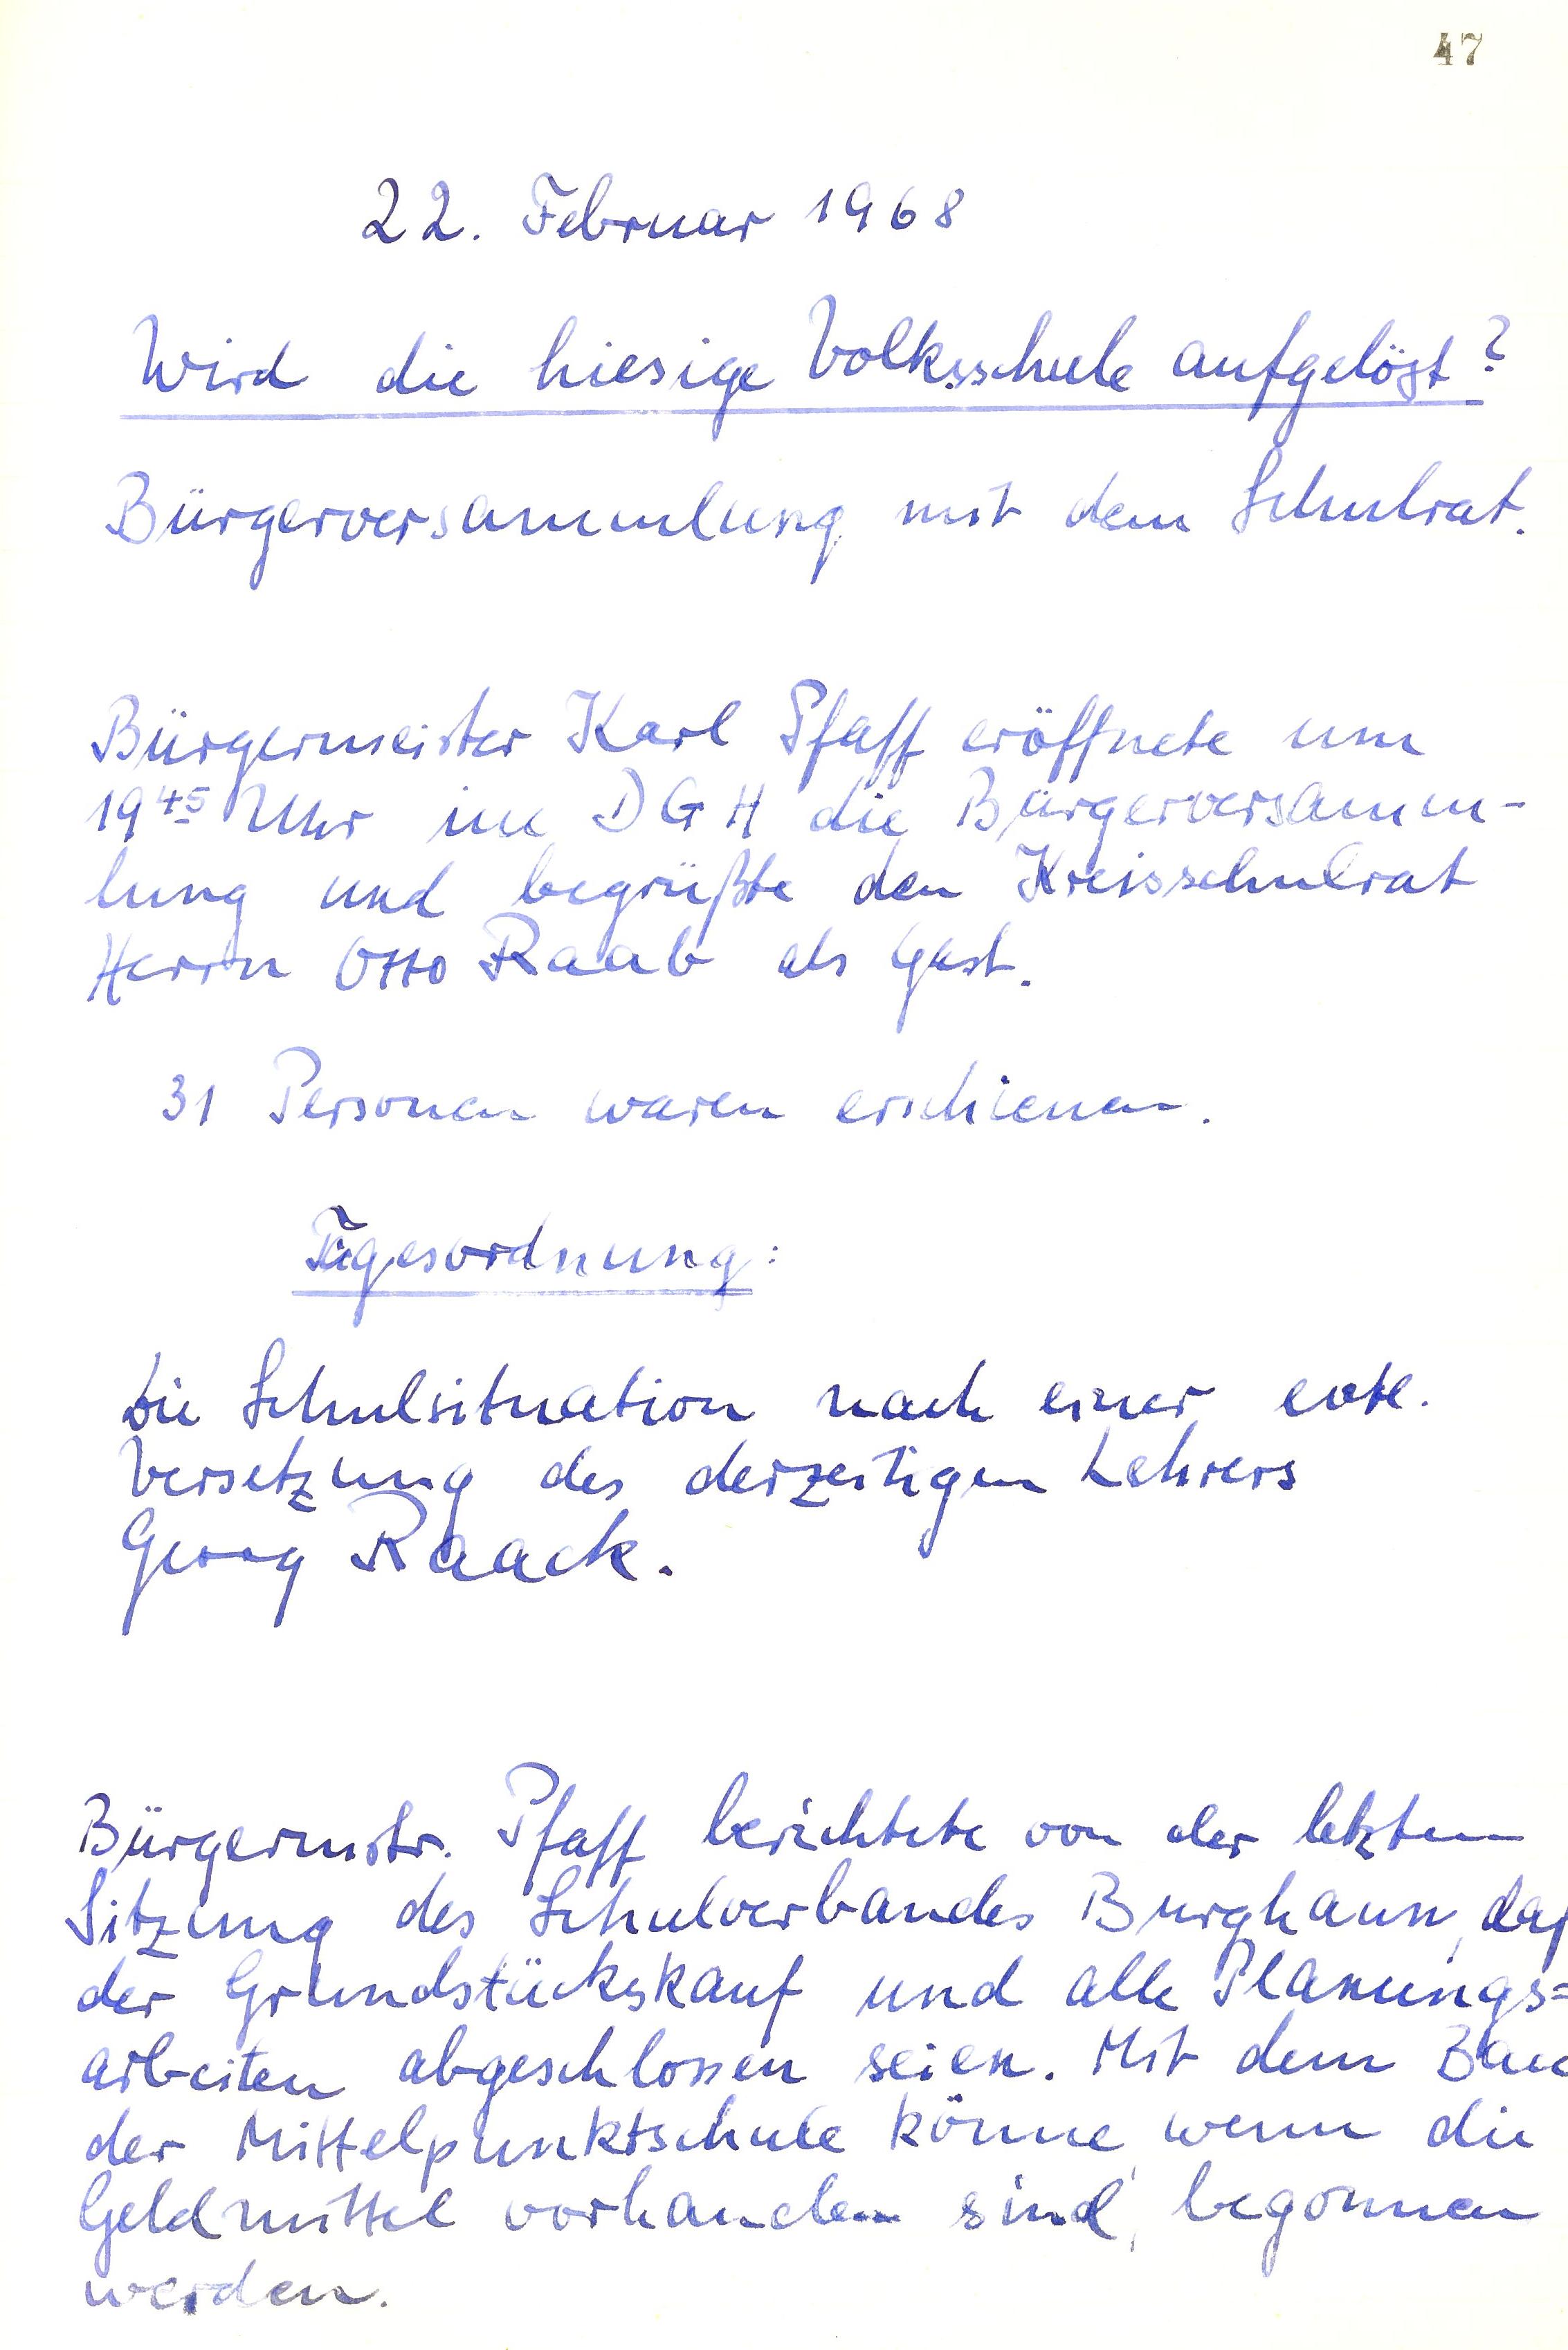 47
22. Februar 1968
Wird die hiesige Volksschule aufgelöst?
Bürgerversammlung mit dem Schulrat.
Bürgermeister Karl Pfaff eröffnete um
19⁴⁵ Uhr im DGH die Bürgerversamm-
lung und begrüßte den Kreisschulrat
Herrn Otto Raab als Gast.
31 Personen waren erschienen.
Tagesordnung:
Die Schulsituation nach einer evtl.
Versetzung des derzeitigen Lehrers
Georg Raack.
Bürgermstr. Pfaff berichtete von der letzten
Sitzung des Schulverbandes Burghaun, daß
der Grundstückskauf und alle Planungs=
arbeiten abgeschlossen seien. Mit dem Bau
der Mittelpunktschule könne, wenn die
Geldmittel vorhanden sind, begonnen
werden.